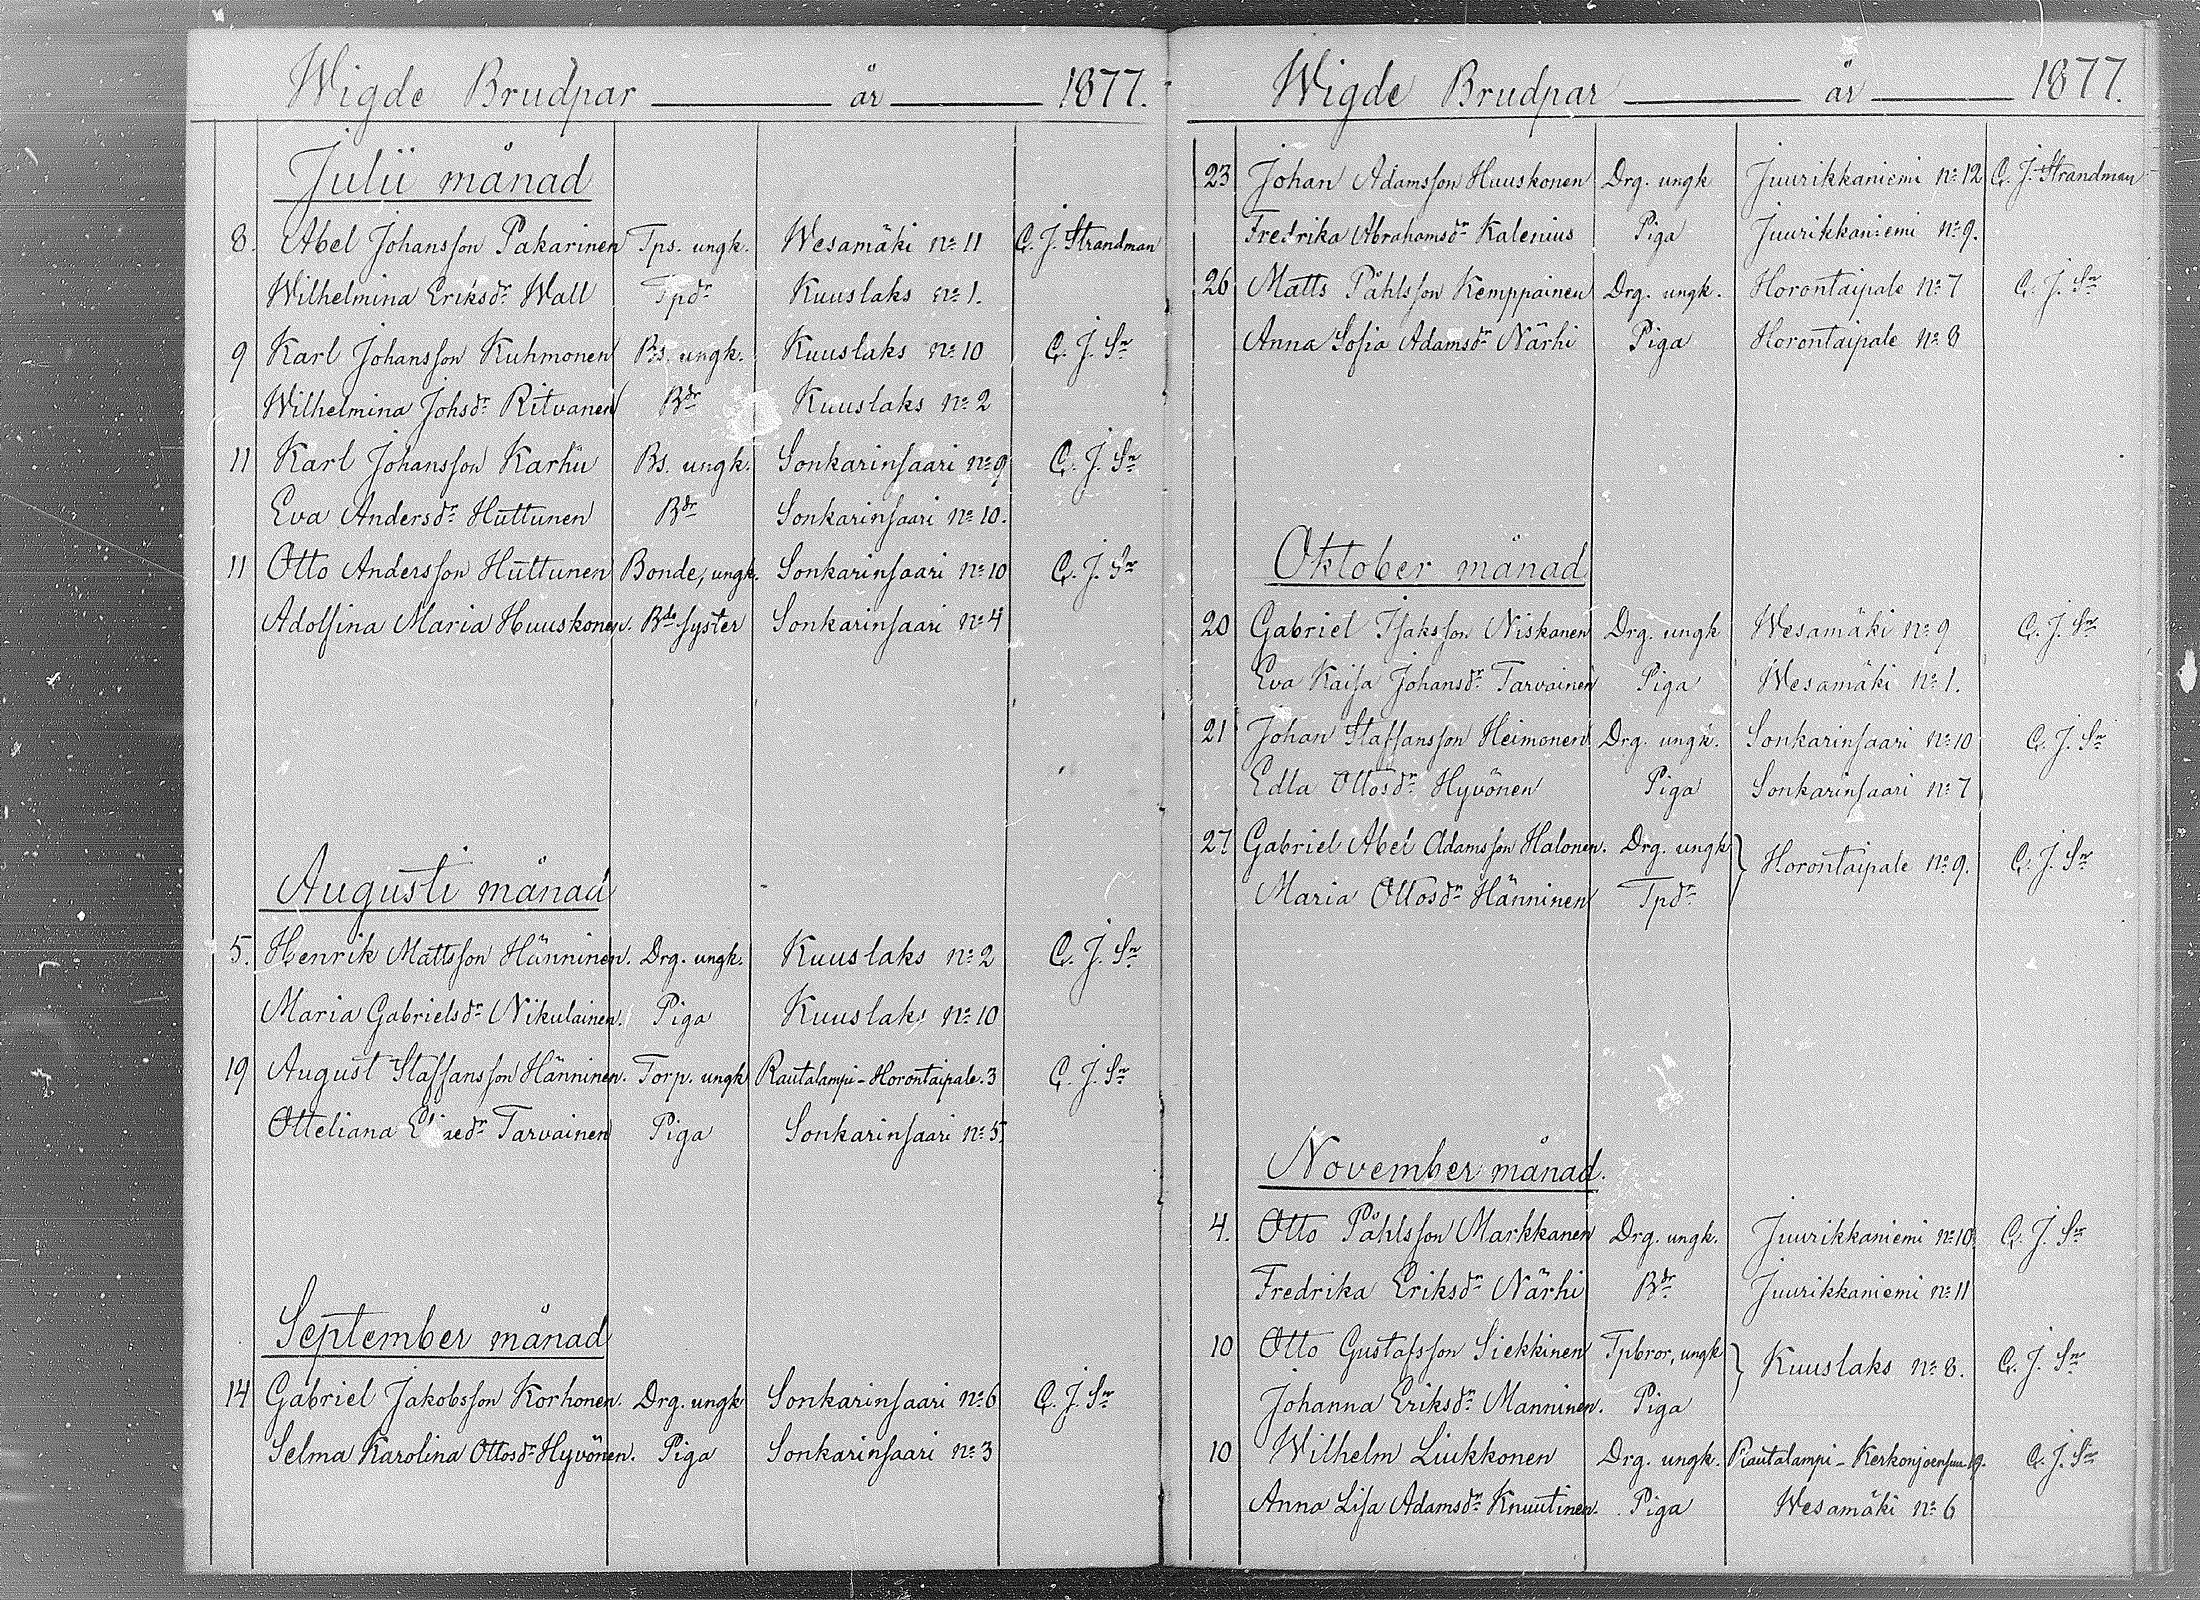 Wigde Brudpar år 1877.
Julii månad
8. Abel Johansson Pakarinen Tps. ungk. Wesamäki nº 11 C. J. Strandman
Wilhelmina Eriksdr Wall Tpdr Kuuslaks nº 1.
9 Karl Johansson Kuhmonen Bs. ungk. Kuuslaks nº 10 C. J. Sn
Wilhelmina Johsdr Ritvanen Bdr Kuuslaks nº 2
11 Karl Johansson Karhu Bs. ungk. Sonkarinsaari nº 9 C. J. Sn
Eva Andersdr Huttunen Bdr Sonkarinsaari nº 10.
11 Otto Andersson Huttunen Bonde, ungk. Sonkarinsaari nº 10 C. J. Sn
Adolfina Maria Huuskonen. Bde syster Sonkarinsaari nº 4
Augusti månad
5. Henrik Mattsson Hänninen. Drg. ungk. Kuuslaks nº 2 C. J. Sn
Maria Gabrielsdr Nikulainen. Piga Kuuslaks nº 10
19 August Staffansson Hänninen. Torp. ungk Rautalampi - Horontaipale. 3 C. J. Sn
Otteliana Tarvainen Piga Sonkarinsaari nº 5.
September månad
14 Gabriel Jakobsson Korhonen. Drg. ungk Sonkarinsaari nº 6 C. J. Sn
Selma Karolina Ottosdr Hyvönen. Piga Sonkarinsaari nº 3
Wigde Brudpar år 1877.
23 Johan Adamsson Huuskonen Drg. ungk Juurikkaniemi nº 12 C. J. Strandman
Fredrika Abrahamsdr Kalenius Piga Juurikkaniemi nº 9.
26 Matts Påhlsson Kemppainen Drg. ungk. Horontaipale nº 7 C. J. Sn
Anna Sofia Adamsdr Närhi Piga Horontaipale nº 8
Oktober månad
20 Gabriel Isaksson Niskanen Drg. ungk Wesamäki nº 9 C. J. Sn
Eva Kaisa Johansdr Tarvainen Piga Wesamäki nº 1.
21 Johan Staffansson Heimonen Drg. ungk. Sonkarinsaari nº 10 C. J. Sn
Edla Ottosdr Hyvönen Piga Sonkarinsaari nº 7
27 Gabriel Abel Adamsson Halonen. Drg. ungk Horontaipale nº 9. C. J. Sn
Maria Ottosdr Hänninen Tpdr
November månad.
4. Otto Påhlsson Markkanen Drg. ungk. Juurikkaniemi nº 10 C. J. Sn
Fredrika Eriksdr Närhi Bdr Juurikkaniemi nº 11
10 Otto Gustafsson Siekkinen Tpbror, ungk Kuuslaks nº 8. C. J. Sn
Johanna Eriksdr Manninen. Piga
10 Wilhelm Liukkonen Drg. ungk. Rautalampi - Kerkonjoensuu 19. C. J. Sn
Anna Lisa Adamsdr Knuutinen. Piga Wesamäki nº 6